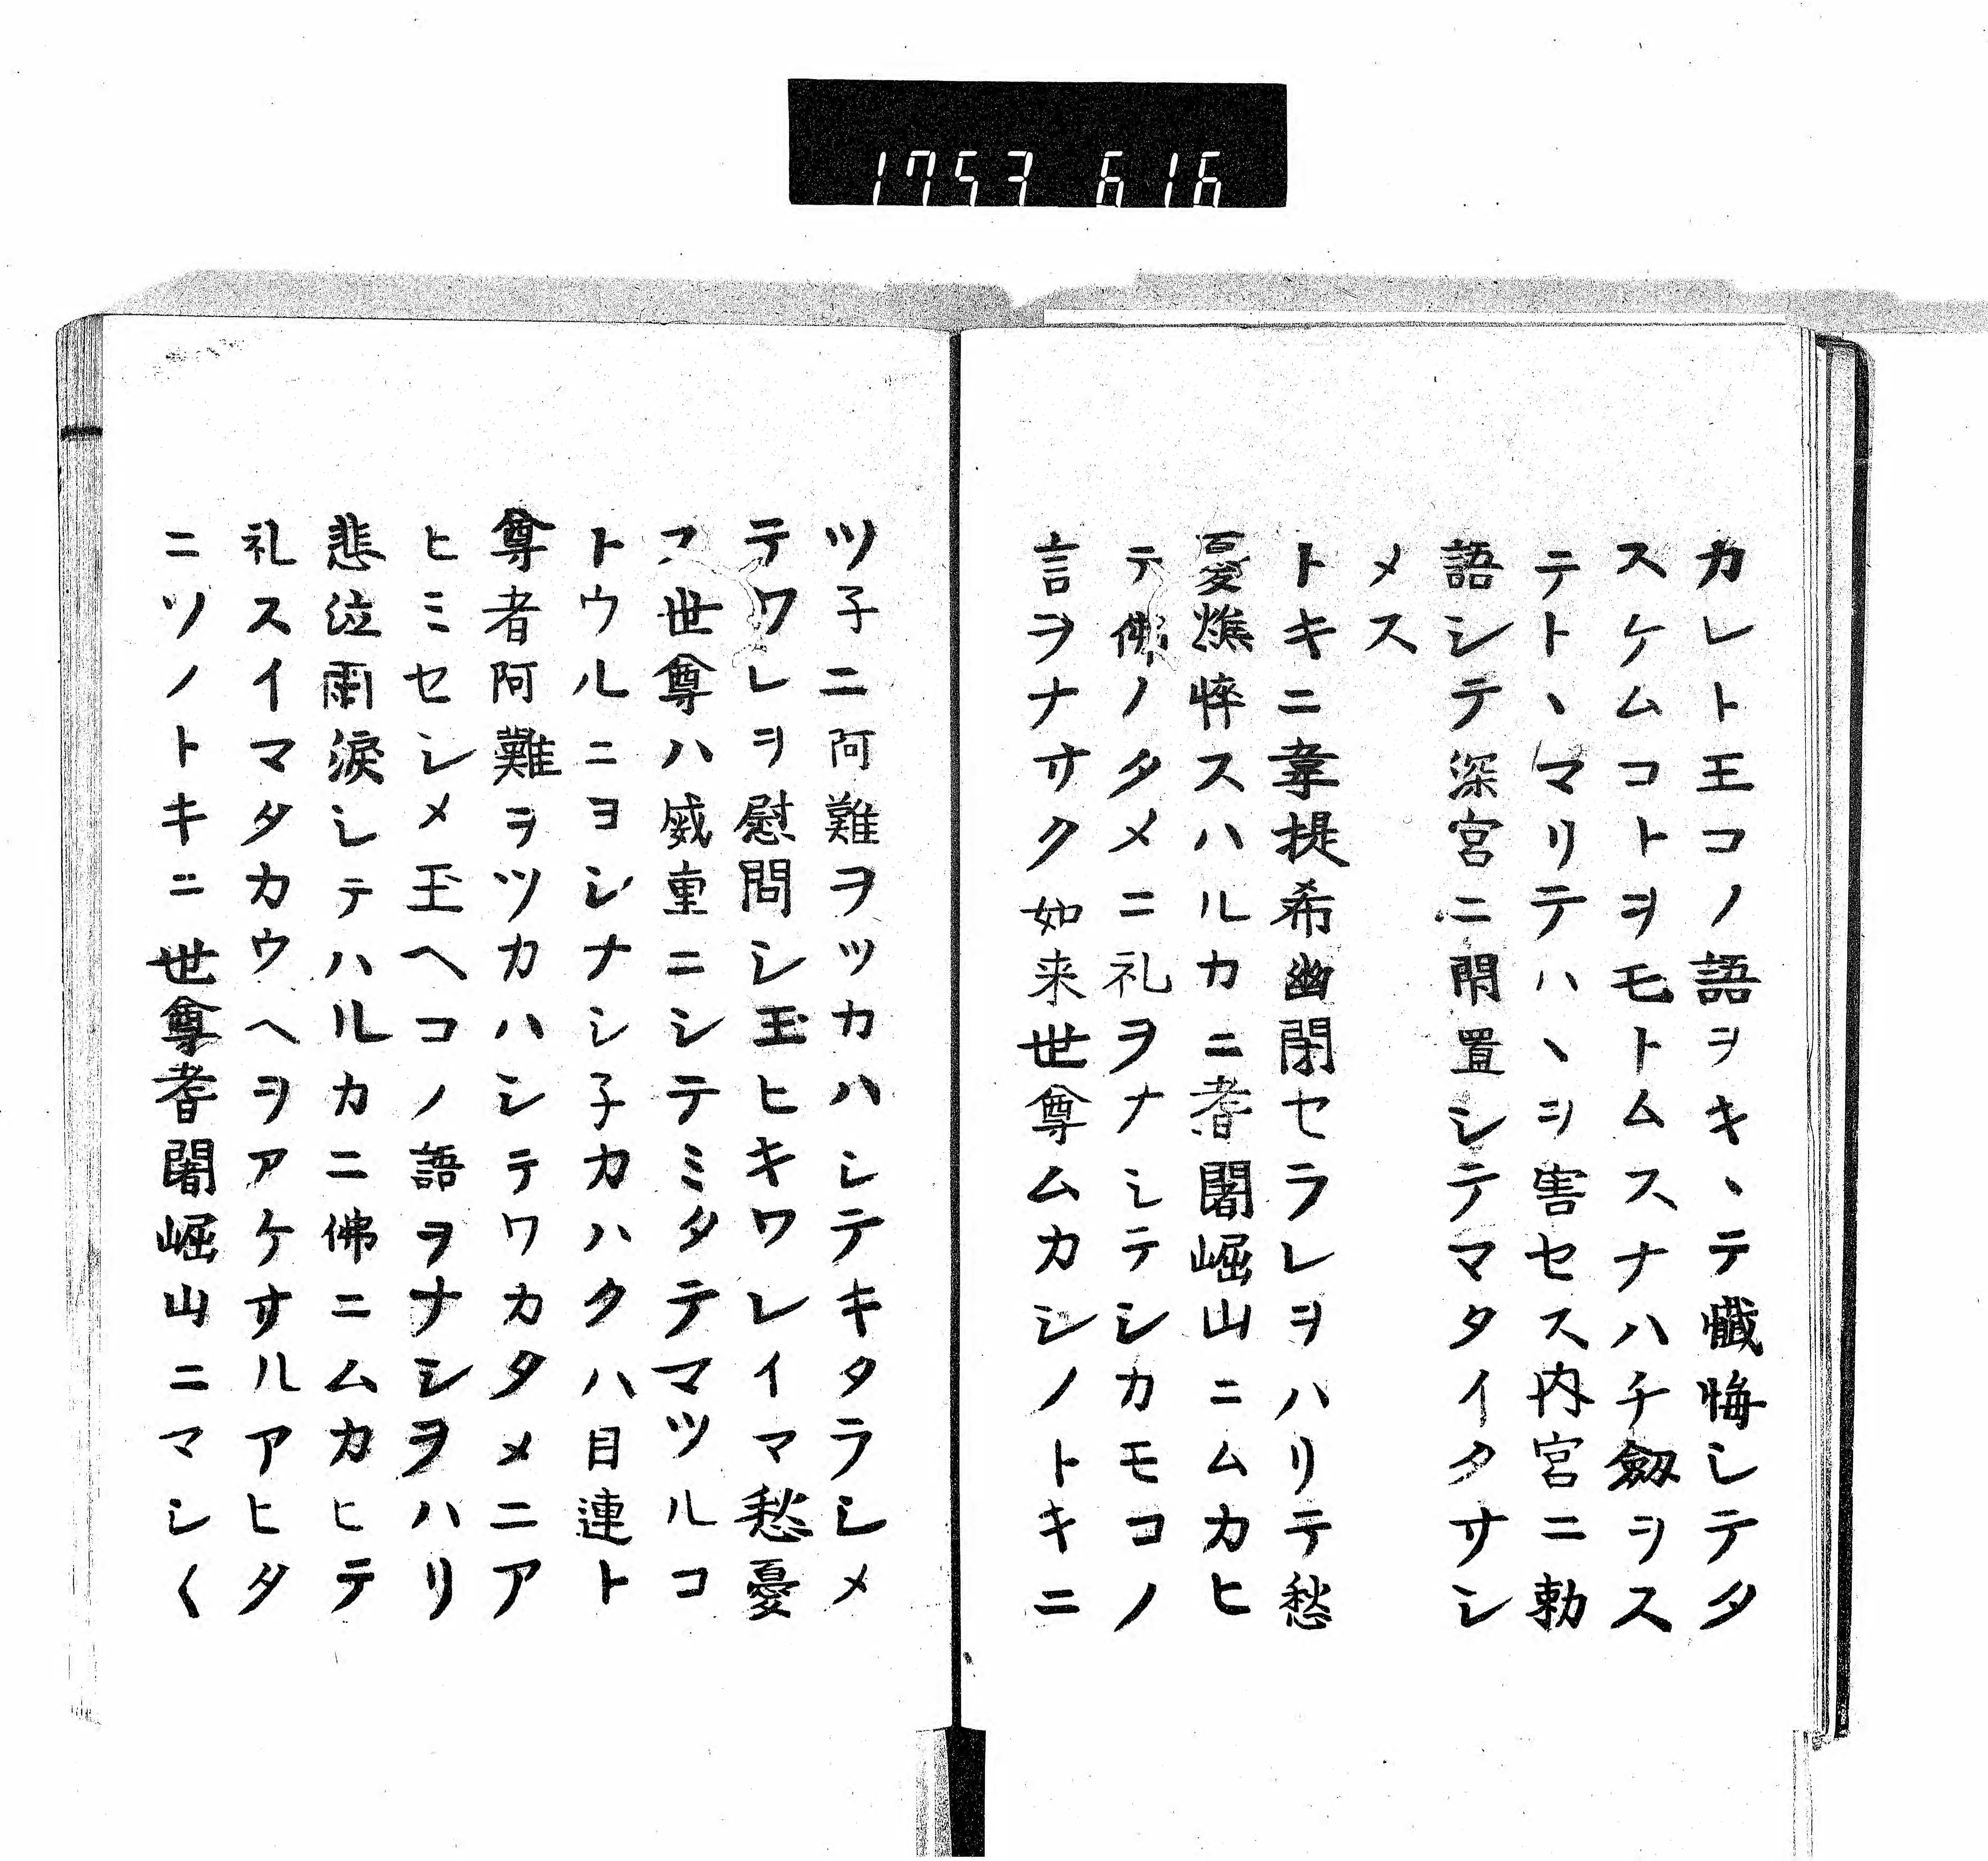 1753 616
カレト王コノ語ヲキヽテ懺悔シテタ
スケムコトヲモトムスナハチ劔ヲス
テトヽマリテハヽヲ害セス内宮ニ勅
語シテ深宮ニ閇置シテマタイタサシ
メス
トキニ韋提希幽閇セラレヲハリテ愁
憂憔悴スハルカニ耆闍崛山ニムカヒ
テ佛ノタメニ礼ヲナシテシカモコノ
言ヲナサク如来世尊ムカシノトキニ
ツ子ニ阿難ヲツカハシテキタラシメ
テワレヲ慰問シ玉ヒキワレイマ愁憂
ス世尊ハ威重ニシテミタテマツルコ
トウルニヨシナシ子カハクハ目連ト
尊者阿難ヲツカハシテワカタメニア
ヒミセシメ玉ヘコノ語ヲナシヲハリ
悲泣雨涙シテハルカニ佛ニムカヒテ
礼スイマタカウヘヲアケサルアヒタ
ニソノトキニ世尊耆闍崛山ニマシ〱